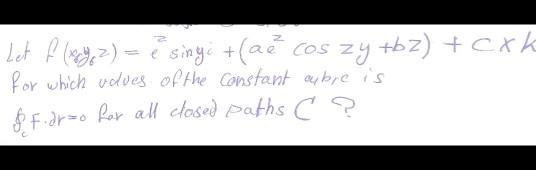 Let f(x,y,z) = e^z sin y i + (a e^z cos zy + bz) + c x k
for which values of the constant a,b,c is
∮_c F.dr=0 for all closed paths C ?